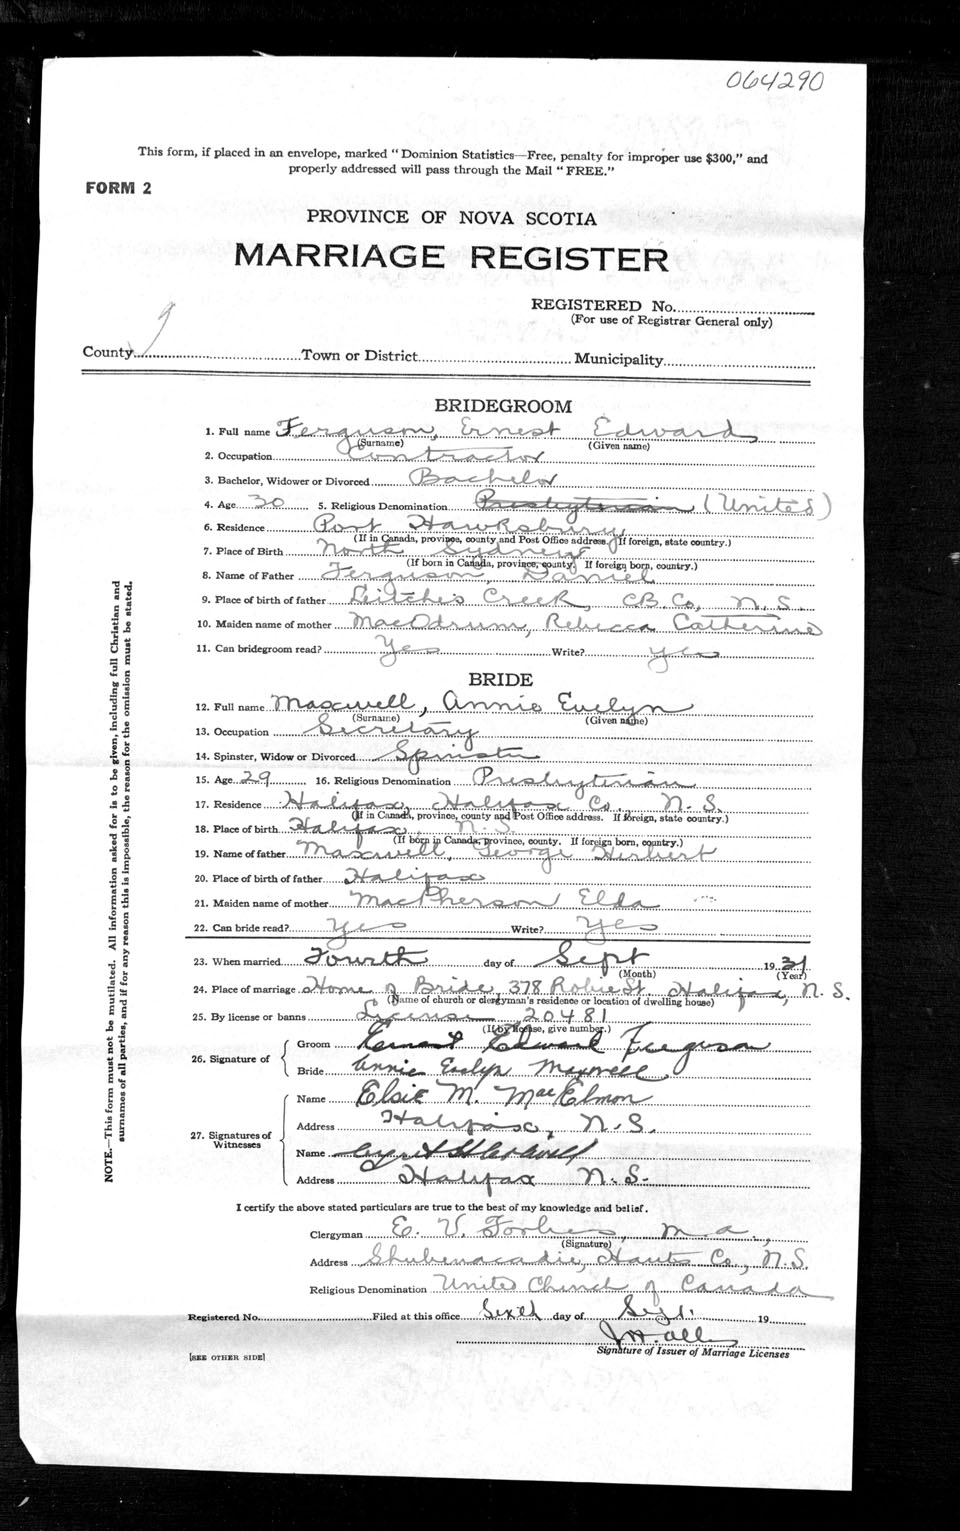 064290
This form, if placed in an envelope, marked "Dominion Statistics—Free, penalty for improper use $300," and
properly addressed will pass through the Mail "FREE."
FORM 2
PROVINCE OF NOVA SCOTIA
MARRIAGE REGISTER
REGISTERED No.
(For use of Registrar General only)
County Town or District Municipality
BRIDEGROOM
1. Full name Ferguson, Ernest Edward
(Surname) (Given name)
2. Occupation Contractor
3. Bachelor, Widower or Divorced Bachelor
4. Age 30 5. Religious Denomination Presbyterian (United)
6. Residence Port Hawksbury
(If in Canada, province, county and Post Office address. If foreign, state country.)
7. Place of Birth North Sydney
(If born in Canada, province, county. If foreign born, country.)
8. Name of Father Ferguson, Daniel
9. Place of birth of father Leitches Creek, C.B. Co, N.S.
10. Maiden name of mother MacOdrum, Rebecca Catherine
11. Can bridegroom read? Yes Write? yes
BRIDE
12. Full name Maxwell, Annie Evelyn
(Surname) (Given name)
13. Occupation Secretary
14. Spinster, Widow or Divorced Spinster
15. Age 29 16. Religious Denomination Presbyterian
17. Residence Halifax, Halifax Co., N.S.
(If in Canada, province, county and Post Office address. If foreign, state country.)
18. Place of birth Halifax, N.S.
(If born in Canada, province, county. If foreign born, country.)
19. Name of father Maxwell, George Herbert
20. Place of birth of father Halifax
21. Maiden name of mother MacPherson Elda
22. Can bride read? Yes Write? Yes
23. When married Fourth day of Sept 1931
(Month) (Year)
24. Place of marriage Home of Bride, 378 Robie St. Halifax, N.S.
(Name of church or clergyman's residence or location of dwelling house)
25. By license or banns License 20481
(If by license, give number.)
26. Signature of
Groom Ernest Edward Ferguson
Bride Annie Evelyn Maxwell
27. Signatures of Witnesses
Name Elsie M. MacElmon
Address Halifax, N.S.
Name
Address Halifax N.S.
I certify the above stated particulars are true to the best of my knowledge and belief.
Clergyman E. V. Forbes, M.A.,
(Signature)
Address Shubenacadie, Hants Co., N.S.
Religious Denomination United Church of Canada
Registered No. Filed at this office Sixth day of Sept. 19
Signature of Issuer of Marriage Licenses
[SEE OTHER SIDE]
NOTE.—This form must not be mutilated. All information asked for is to be given, including full Christian and
surnames of all parties, and if for any reason this is impossible, the reason for the omission must be stated.